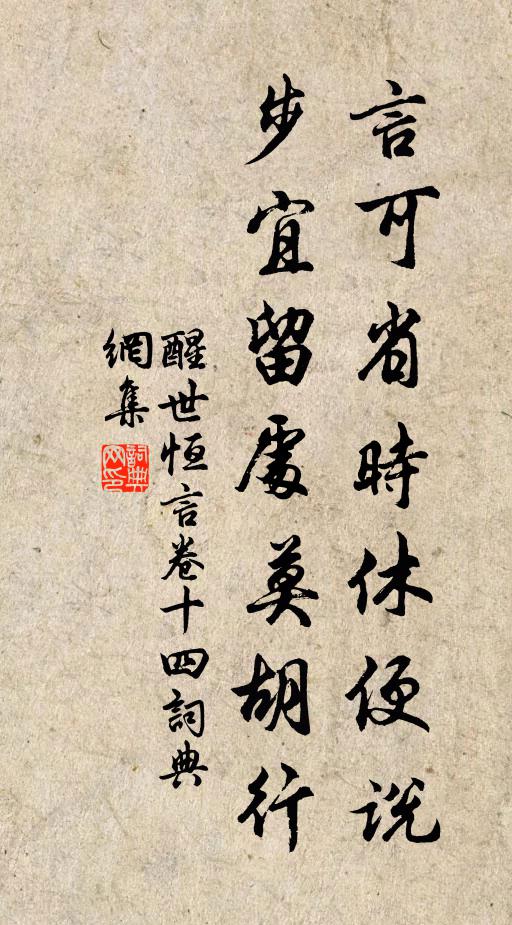 言可省時休便說
步宜留處莫胡行
醒世恒言卷十四詞典
網集
詞典
网印